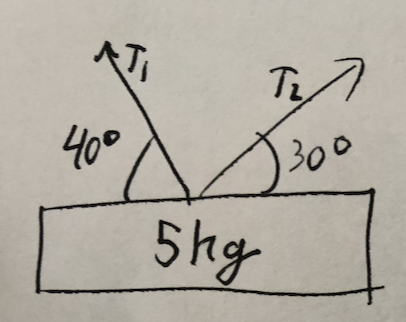 T1 T2
40° 30°
5kg